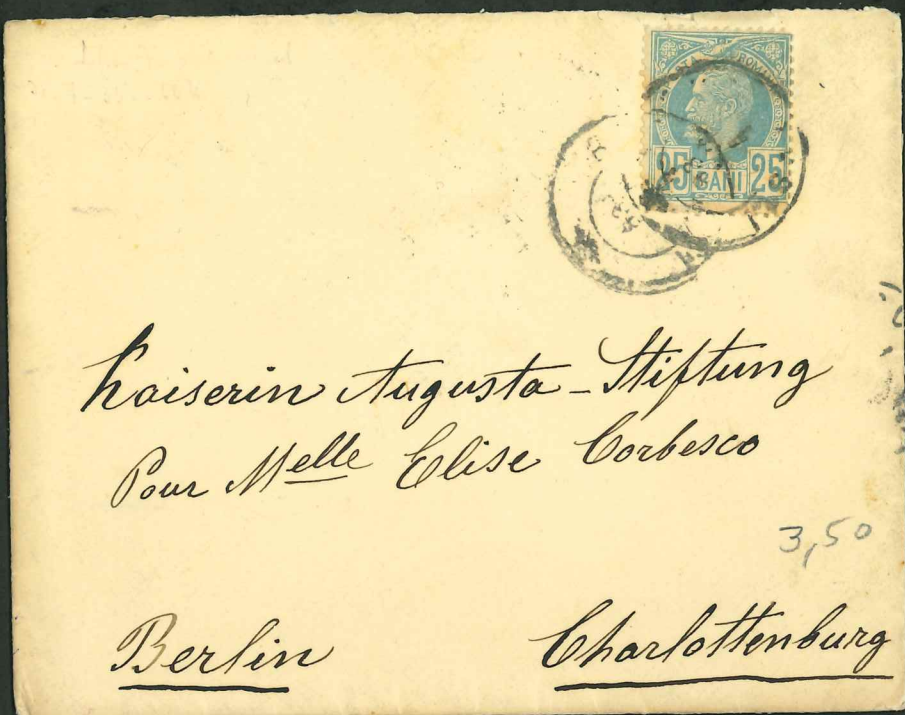 25 BANI 25
Kaiserin Augusta - Stiftung
Pour Melle Elise Corbesco
3,50
Berlin Charlottenburg